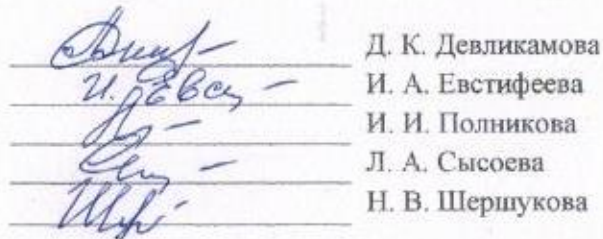 Д. К. Девликамова
И. Евс И. А. Евстифеева
И. И. Полникова
Л. А. Сысоева
Н. В. Шершукова